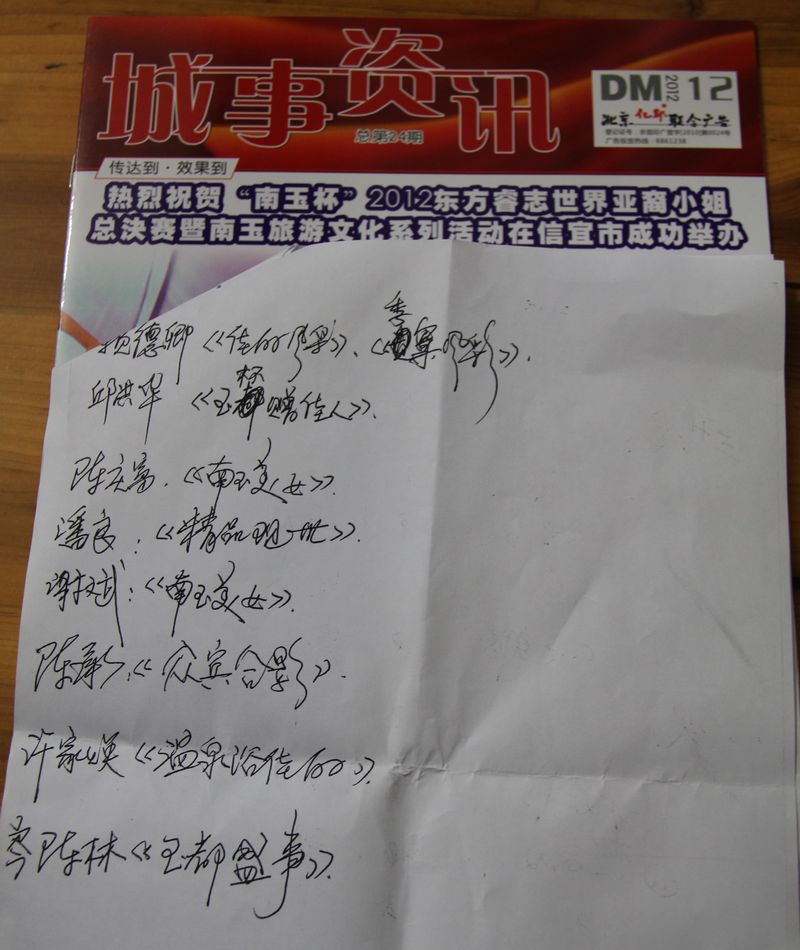 城事资讯
总第24期
DM 2012 12
北京 联合广告
登记证号：京工商印广登字[2010]第0024号
广告投放热线：8861238
传达到·效果到
热烈祝贺“南玉杯”2012东方睿志世界亚裔小姐
总决赛暨南玉旅游文化系列活动在信宜市成功举办
德卿《佳丽风彩》、《季军风彩》.
邱洪华 《玉杯赠佳人》.
陈庆富.《南玉美女》.
潘良：《精品现世》.
谢斌：《南玉美女》.
陈彰：《众宾合影》.
许家焕《温泉浴佳丽》.
陈林《玉都盛事》.